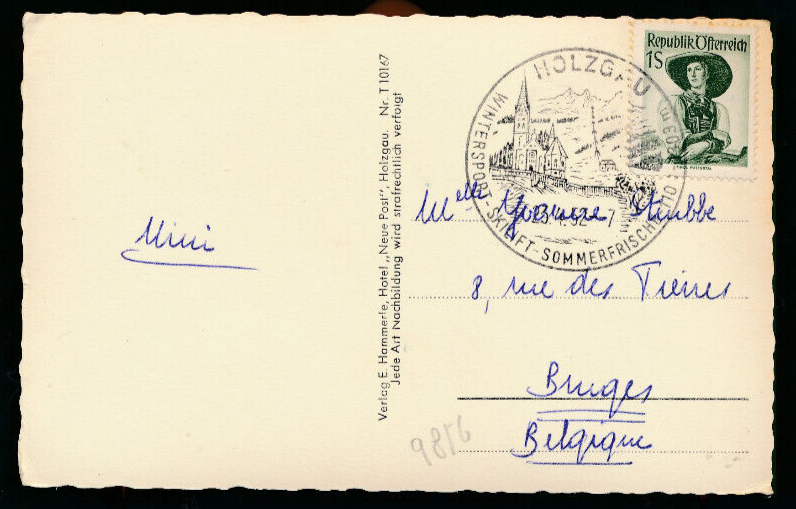 Mimi
Verlag E. Hammerle, Hotel „Neue Post", Holzgau. Nr. T 10167
Jede Art Nachbildung wird strafrechtlich verfolgt
HOLZGAU
WINTERSPORT-SKILIFT-SOMMERFRISCHE
52-7
Republik Österreich
1S
Melle Yvonne Strubbe
8, rue des
Bruges
Belgique
9816